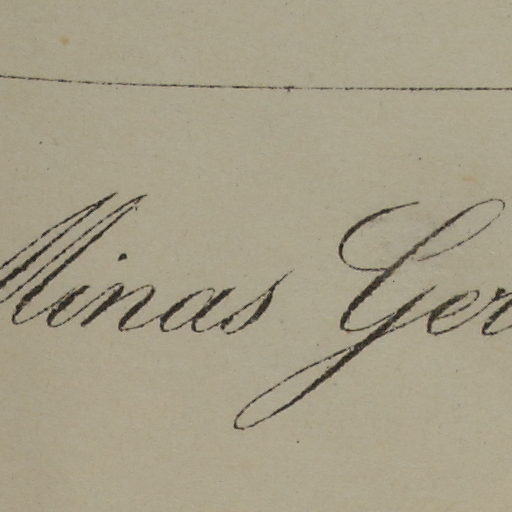 Minas Ger